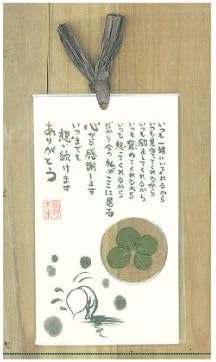 いつも一緒にいてくれるから
いつも見守ってくれるから
いつも励ましてくれるから
いつも慰めてくれるから
いつも想ってくれるから
だから今、私がここに居る
心から感謝します
いつまでも
想い続けます
ありがとう